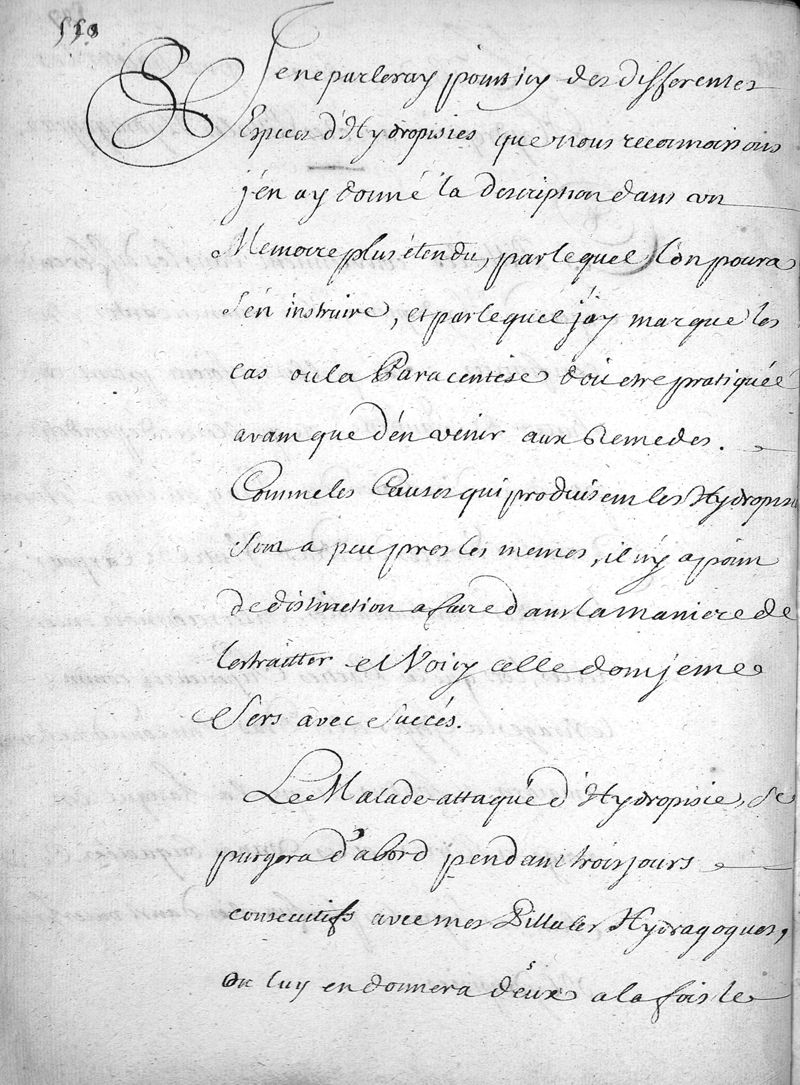 558
Je ne parleray point icy des differentes
Especes d'Hydropisies que nous reconnoissons
j'en ay donné la description dans un
Memoire plus étendu, par lequel l'on poura
s'en instruire, et par lequel j'ay marque les
cas ou la Paracentese doit etre pratiquée
avant que d'en venir aux Remedes.
Comme les Causes qui produisent les Hydropisi
sont a peu pres les memes, il n'y a point
de distinction a faire dans la maniere de
les traitter et Voicy celle dont je me
sers avec succés.
Le Malade attaqué d'Hydropisie, se
purgera d'abord pendant trois jours
consecutifs avec mes Pillules Hydragogues,
on luy en donnera deux a la fois le